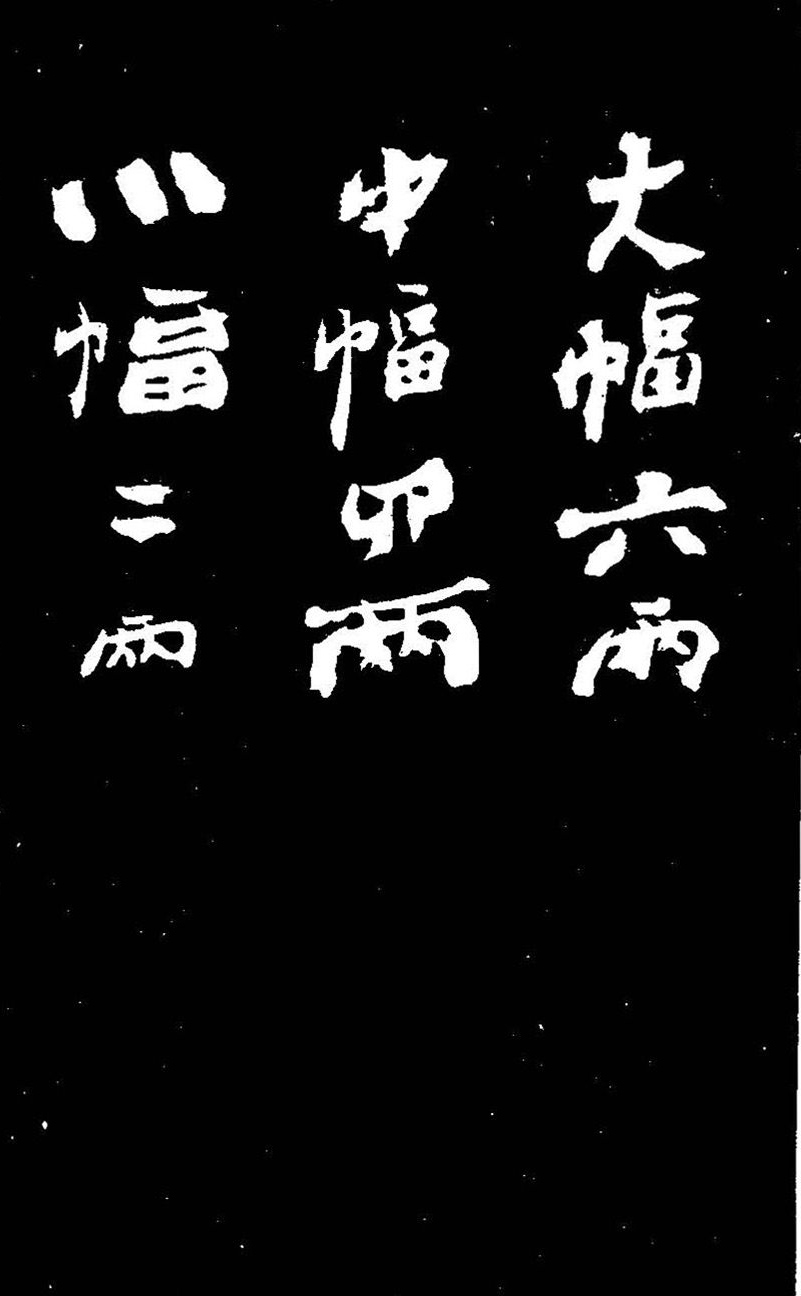 大幅六兩
中幅四兩
小幅二兩